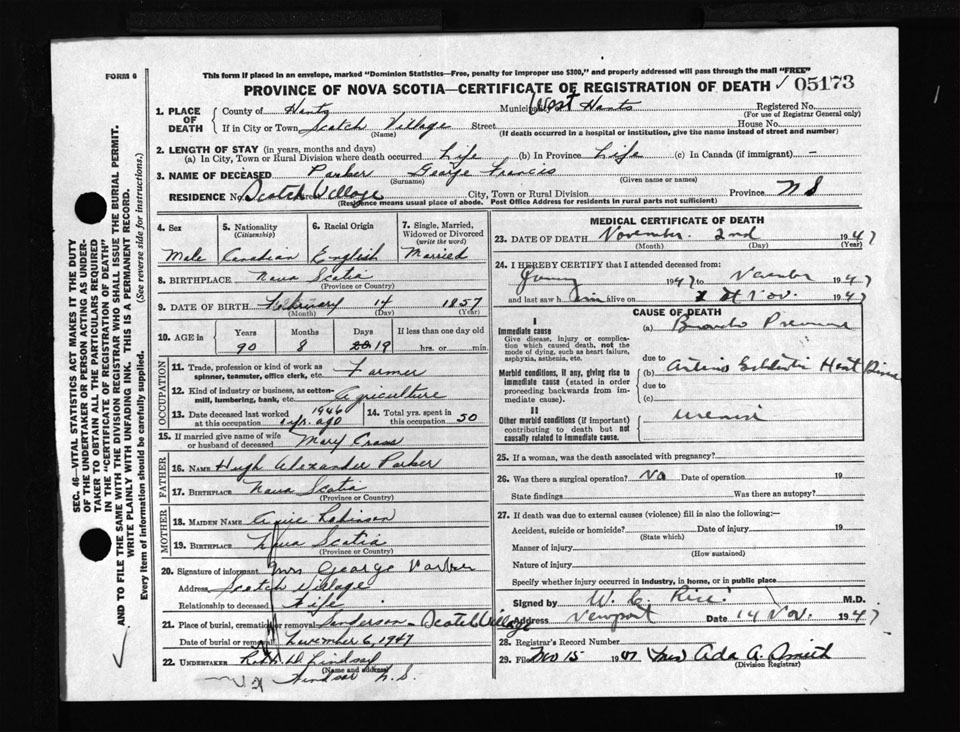 FORM 6
This form if placed in an envelope, marked "Dominion Statistics—Free, penalty for improper use $300," and properly addressed will pass through the mail "FREE"
PROVINCE OF NOVA SCOTIA—CERTIFICATE OF REGISTRATION OF DEATH 05173
1. PLACE OF DEATH
County of Hants Municipality of West Hants Registered No.
(For use of Registrar General only)
If in City or Town Scotch Village Street House No.
(Name) (If death occurred in a hospital or institution, give the name instead of street and number)
2. LENGTH OF STAY (in years, months and days)
(a) In City, Town or Rural Division where death occurred Life (b) In Province Life (c) In Canada (if immigrant) —
3. NAME OF DECEASED Parker George Francis
(Surname) (Given name or names)
RESIDENCE No. Scotch Village City, Town or Rural Division Province N S
(Residence means usual place of abode. Post Office Address for residents in rural parts not sufficient)
4. Sex
Male
5. Nationality
(Citizenship)
Canadian
6. Racial Origin
English
7. Single, Married, Widowed or Divorced
(write the word)
Married
8. BIRTHPLACE Nova Scotia
(Province or Country)
9. DATE OF BIRTH February 14 1857
(Month) (Day) (Year)
10. AGE in Years Months Days If less than one day
90 8 19 hrs. or min.
OCCUPATION
11. Trade, profession or kind of work as
spinner, teamster, office clerk, etc. Farmer
12. Kind of industry or business, as cotton-
mill, lumbering, bank, etc. Agriculture
13. Date deceased last worked
at this occupation 1946 1 yr. ago
14. Total yrs. spent in
this occupation 50
15. If married give name of wife
or husband of deceased Mary
FATHER
16. NAME Hugh Alexander Parker
17. BIRTHPLACE Nova Scotia
(Province or Country)
MOTHER
18. MAIDEN NAME Robinson
19. BIRTHPLACE Nova Scotia
(Province or Country)
20. Signature of informant Mrs George Parker
Address Scotch Village
Relationship to deceased Wife
21. Place of burial, cremation or removal Scotch Village
Date of burial or removal November 6, 1947
22. UNDERTAKER Lindsay
(Name and address)
Windsor N.S.
MEDICAL CERTIFICATE OF DEATH
23. DATE OF DEATH November 2nd 1947
(Month) (Day) (Year)
24. I HEREBY CERTIFY that I attended deceased from:
1947 to November 1947
and last saw him alive on Nov. 1947
CAUSE OF DEATH
I
Immediate cause
Give disease, injury or complica-
tion which caused death, not the
mode of dying, such as heart failure,
asphyxia, asthenia, etc.
(a) Broncho
due to
Morbid conditions, if any, giving rise to
immediate cause (stated in order
proceeding backwards from im-
mediate cause).
(b) Heart
due to
(c)
II
Other morbid conditions (if important)
contributing to death but not
causally related to immediate cause.
25. If a woman, was the death associated with pregnancy?
26. Was there a surgical operation? No Date of operation 19
State findings Was there an autopsy?
27. If death was due to external causes (violence) fill in also the following:—
Accident, suicide or homicide? Date of injury 19
(State which)
Manner of injury
(How sustained)
Nature of injury
Specify whether injury occurred in industry, in home, or in public place
Signed by M.D.
Address Newport Date 14 Nov. 1947
28. Registrar's Record Number
29. Filed Nov 15 1947 Mrs Ada A. Smith
(Division Registrar)
SEC. 46—VITAL STATISTICS ACT MAKES IT THE DUTY
OF THE UNDERTAKER OR PERSON ACTING AS UNDER-
TAKER TO OBTAIN ALL THE PARTICULARS REQUIRED
IN THE "CERTIFICATE OF REGISTRATION OF DEATH"
AND TO FILE THE SAME WITH THE DIVISION REGISTRAR WHO SHALL ISSUE THE BURIAL PERMIT.
WRITE PLAINLY WITH UNFADING INK. THIS IS A PERMANENT RECORD.
Every item of information should be carefully supplied. (See reverse side for instructions.)